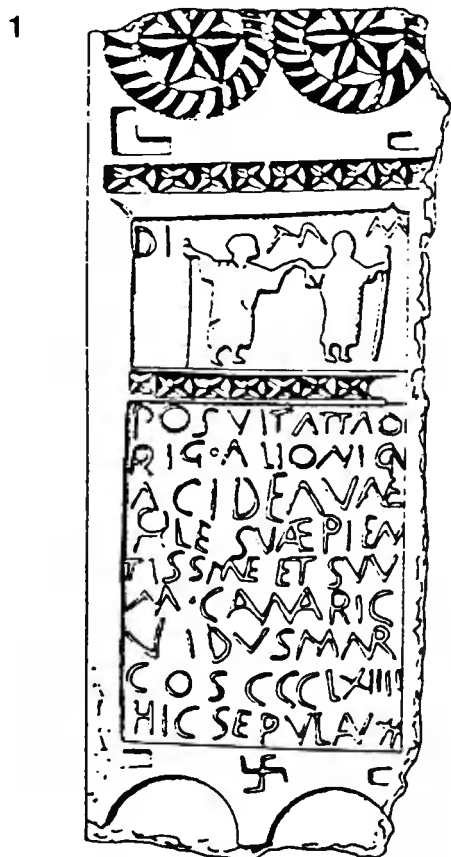 1
DI M M
POSVITATTAO
RIG·ALIONIGN
ACIDEAVNÆ
SVÆPIEN
TISSME ET SVV
CAVARIC
IDVSMAR
COS CCCLXIIII
HIC SEPVLA